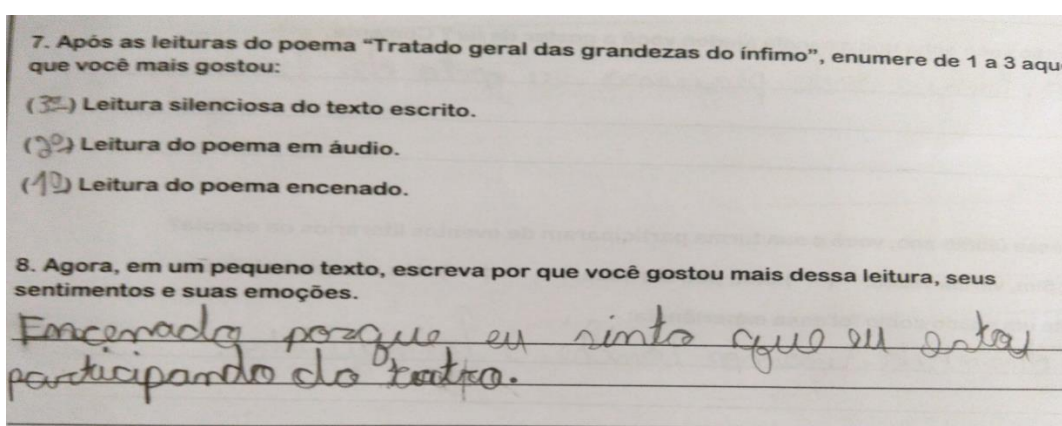 7. Após as leituras do poema “Tratado geral das grandezas do ínfimo”, enumere de 1 a 3 aqu
que você mais gostou:
(3º) Leitura silenciosa do texto escrito.
(2º) Leitura do poema em áudio.
(1º) Leitura do poema encenado.
8. Agora, em um pequeno texto, escreva por que você gostou mais dessa leitura, seus
sentimentos e suas emoções.
Encenado porque eu sinto que eu
participando do teatro.